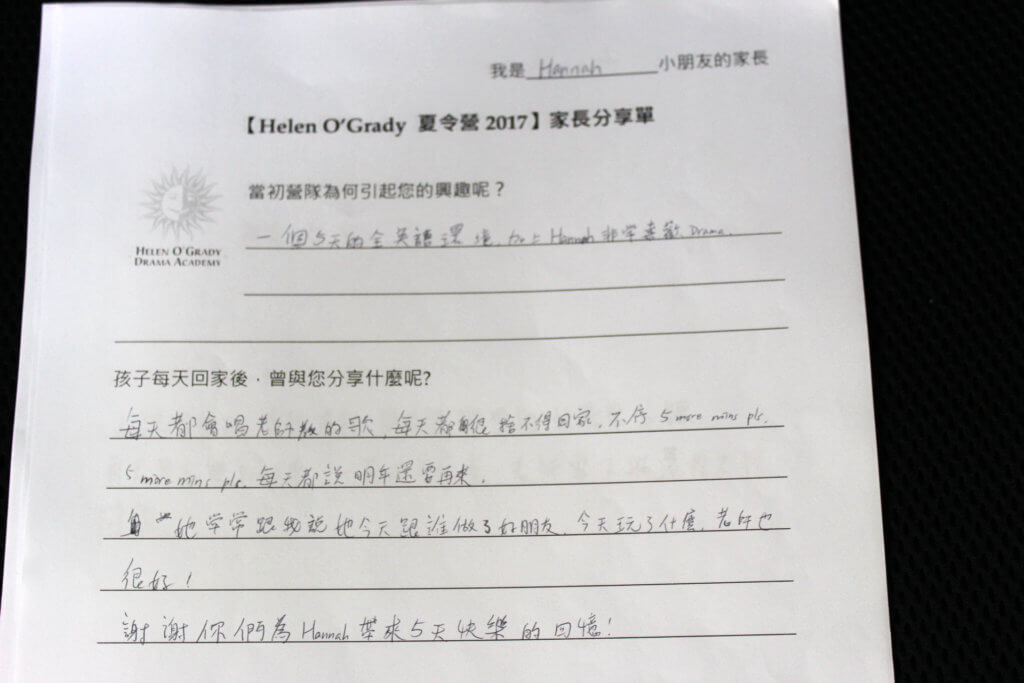 我是 Hannah 小朋友的家長
【Helen O'Grady 夏令營 2017】家長分享單
當初營隊為何引起您的興趣呢？
一個5天的全英語環境，加上Hannah非常喜歡Drama.
HELEN O'GRADY
DRAMA ACADEMY
孩子每天回家後，曾與您分享什麼呢?
每天都會唱老師教的歌，每天都很捨不得回家，不停 5 more mins pls.
5 more mins pls. 每天都說明年還要再來。
她常常跟我說她今天跟誰做了好朋友，今天玩了什麼，老師也
很好！
謝謝你們為Hannah帶來5天快樂的回憶！